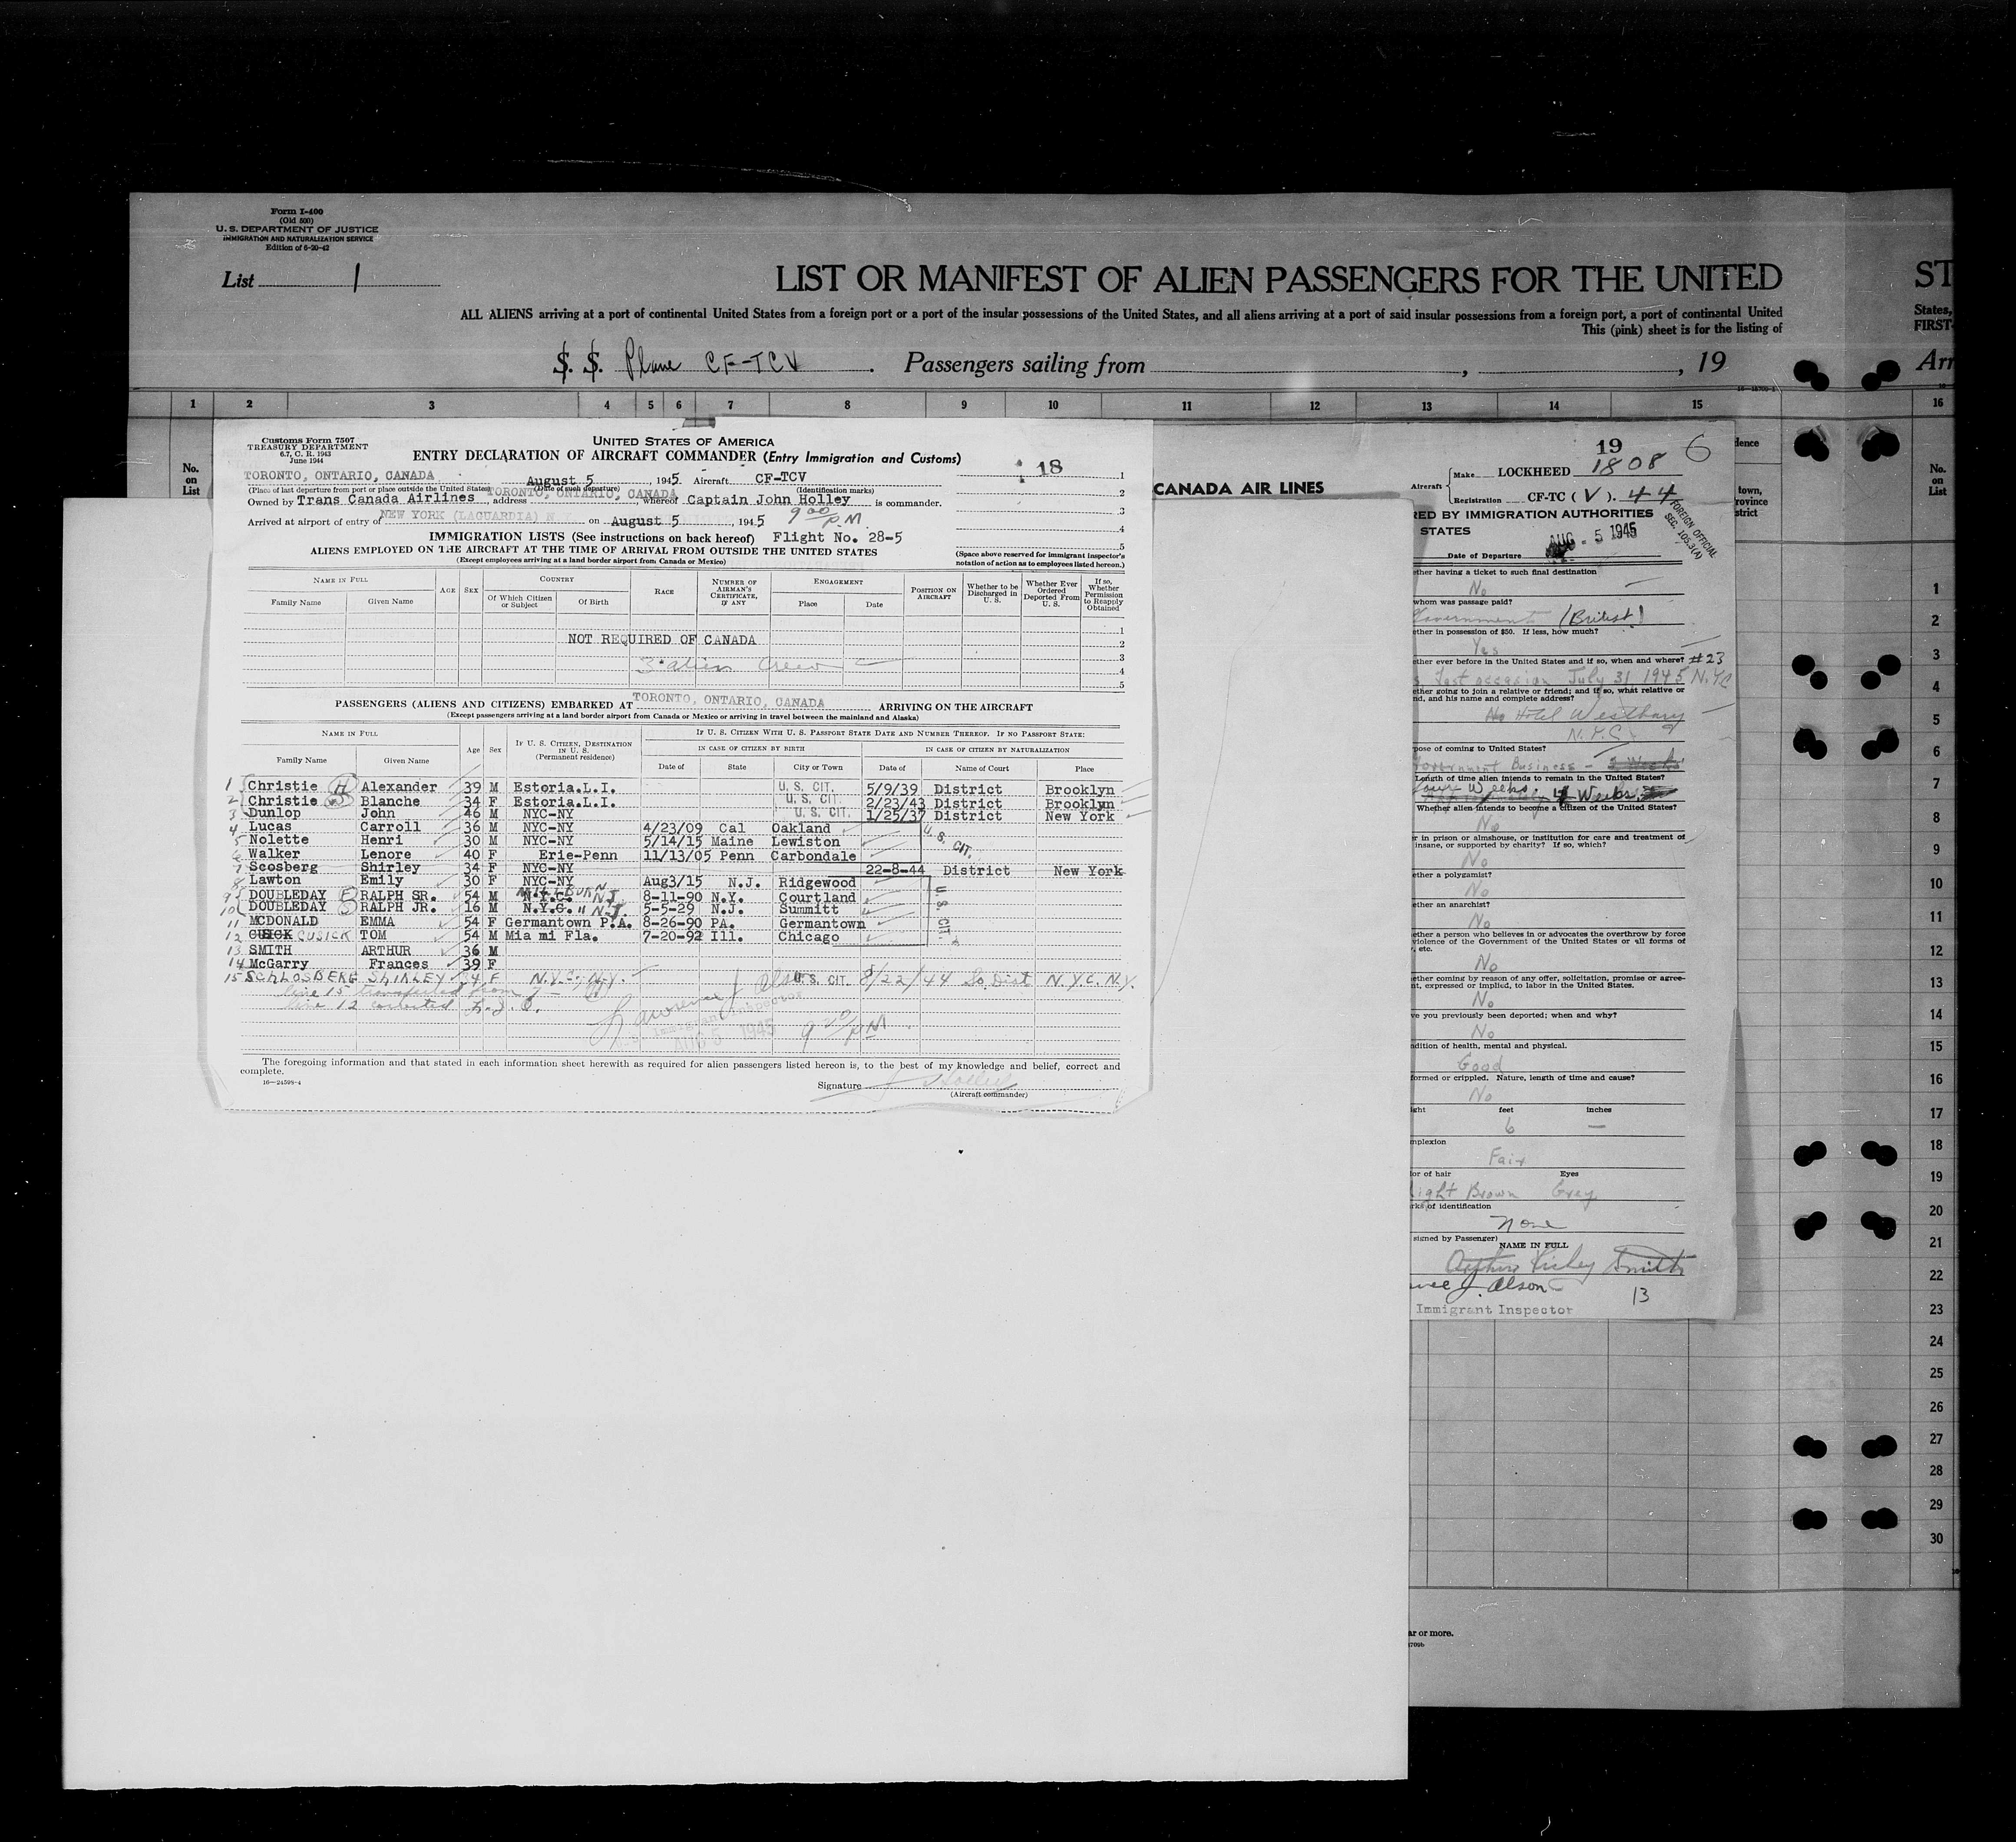 Form I-400
(Old 500)
U. S. DEPARTMENT OF JUSTICE
IMMIGRATION AND NATURALIZATION SERVICE
Edition of 6-20-42
List 1
LIST OR MANIFEST OF ALIEN PASSENGERS FOR THE UNITED
ST
ALL ALIENS arriving at a port of continental United States from a foreign port or a port of the insular possessions of the United States, and all aliens arriving at a port of said insular possessions from a foreign port, a port of continental United
States,
This (pink) sheet is for the listing of
FIRST-
S. S. Plane CF-TCV . Passengers sailing from , , 19
Arr
1 2 3 4 5 6 7 8 9 10 11 12 13 14 15 16
No.
on
List
Customs Form 7507
TREASURY DEPARTMENT
6.7, C. R. 1943
June 1944
UNITED STATES OF AMERICA
ENTRY DECLARATION OF AIRCRAFT COMMANDER (Entry Immigration and Customs)
18
TORONTO, ONTARIO, CANADA August 5, 1945 Aircraft CF-TCV 1
(Place of last departure from port or place outside the United States) (Date of such departure) (Identification marks) 2
Owned by Trans Canada Airlines, address TORONTO, ONTARIO, CANADA, whereof Captain John Holley is commander. 3
Arrived at airport of entry of NEW YORK (LAGUARDIA) N.Y. on August 5, 1945 9 00 P.M. 4
IMMIGRATION LISTS (See instructions on back hereof) Flight No. 28-5 5
ALIENS EMPLOYED ON THE AIRCRAFT AT THE TIME OF ARRIVAL FROM OUTSIDE THE UNITED STATES
(Except employees arriving at a land border airport from Canada or Mexico)
(Space above reserved for immigrant inspector's
notation of action as to employees listed hereon.)
NAME IN FULL
Family Name Given Name
AGE SEX
COUNTRY
Of Which Citizen or Subject Of Birth
RACE
NUMBER OF AIRMAN'S CERTIFICATE, IF ANY
ENGAGEMENT
Place Date
POSITION ON AIRCRAFT
Whether to be Discharged in U. S.
Whether Ever Ordered Deported From U. S.
If so, Whether Permission to Reapply Obtained
1
NOT REQUIRED OF CANADA
2
3 alien Crew 3
4
5
PASSENGERS (ALIENS AND CITIZENS) EMBARKED AT TORONTO, ONTARIO, CANADA ARRIVING ON THE AIRCRAFT
(Except passengers arriving at a land border airport from Canada or Mexico or arriving in travel between the mainland and Alaska)
NAME IN FULL
Family Name Given Name
Age Sex
IF U. S. CITIZEN, DESTINATION IN U. S.
(Permanent residence)
IF U. S. CITIZEN WITH U. S. PASSPORT STATE DATE AND NUMBER THEREOF. IF NO PASSPORT STATE:
IN CASE OF CITIZEN BY BIRTH IN CASE OF CITIZEN BY NATURALIZATION
Date of State City or Town Date of Name of Court Place
1 Christie H Alexander 39 M Estoria.L.I. U. S. CIT. 5/9/39 District Brooklyn
2 Christie W Blanche 34 F Estoria.L.I. U. S. CIT. 2/23/43 District Brooklyn
3 Dunlop John 46 M NYC-NY U. S. CIT. 1/25/37 District New York
4 Lucas Carroll 36 M NYC-NY 4/23/09 Cal Oakland
5 Nolette Henri 30 M NYC-NY 5/14/15 Maine Lewiston U. S. CIT.
6 Walker Lenore 40 F Erie-Penn 11/13/05 Penn Carbondale
7 Scosberg Shirley 34 F NYC-NY 22-8-44 District New York
8 Lawton Emily 30 F NYC-NY Aug3/15 N.J. Ridgewood
9 DOUBLEDAY F RALPH SR. 54 M N.Y.C. MILLBURN N.J. 8-11-90 N.Y. Courtland U. S. CIT.
10 DOUBLEDAY S RALPH JR. 16 M N.Y.C. " N.J. 5-5-29 N.J. Summitt
11 MCDONALD EMMA 54 F Germantown P.A. 8-26-90 PA. Germantown
12 CUSICK TOM 54 M Mia mi Fla. 7-20-92 Ill. Chicago
13 SMITH ARTHUR 36 M
14 McGarry Frances 39 F
15 SCHLOSBERG SHIRLEY 34 F N.Y.C., N.Y. U.S. CIT 8/22/44 So. Dist N.Y.C. N.Y.
line 15 transferred from 7
line 12 corrected L.J.O.
Lawrence J Olson
Immigrant Inspector
AUG 5 1945 9 20 PM
The foregoing information and that stated in each information sheet herewith as required for alien passengers listed hereon is, to the best of my knowledge and belief, correct and
complete.
16—24598-4
Signature
(Aircraft commander)
CANADA AIR LINES
19 6
Aircraft Make LOCKHEED 1808
Registration CF-TC ( V ). 44
RED BY IMMIGRATION AUTHORITIES
STATES
FOREIGN OFFICIAL
SEC. 105.3(A)
Date of Departure AUG - 5 1945
ether having a ticket to such final destination
No
whom was passage paid?
Government (British)
ether in possession of $50. If less, how much?
Yes
ether ever before in the United States and if so, when and where? #23
s last occasion July 31 1945 N.YC
ether going to join a relative or friend; and if so, what relative or
nd, and his name and complete address?
No Hotel Westbury
N.Y.C
pose of coming to United States?
Government Business - 2 Weeks
Length of time alien intends to remain in the United States?
four Weeks. 4 Weeks
Whether alien intends to become a citizen of the United States?
No
r in prison or almshouse, or institution for care and treatment of
insane, or supported by charity? If so, which?
No
ether a polygamist?
No
ether an anarchist?
No
ether a person who believes in or advocates the overthrow by force
violence of the Government of the United States or all forms of
, etc.
No
ether coming by reason of any offer, solicitation, promise or agree-
nt, expressed or implied, to labor in the United States.
No
ve you previously been deported; when and why?
No
ndition of health, mental and physical.
Good
formed or crippled. Nature, length of time and cause?
No
ght feet inches
6 —
mplexion
Fair
or of hair Eyes
Light Brown Grey
rks of identification
None
signed by Passenger)
NAME IN FULL
Arthur Smith
J. Olson
Immigrant Inspector 13
dence
town,
rovince
strict
No.
on
List
1
2
3
4
5
6
7
8
9
10
11
12
13
14
15
16
17
18
19
20
21
22
23
24
25
26
27
28
29
30
ar or more.